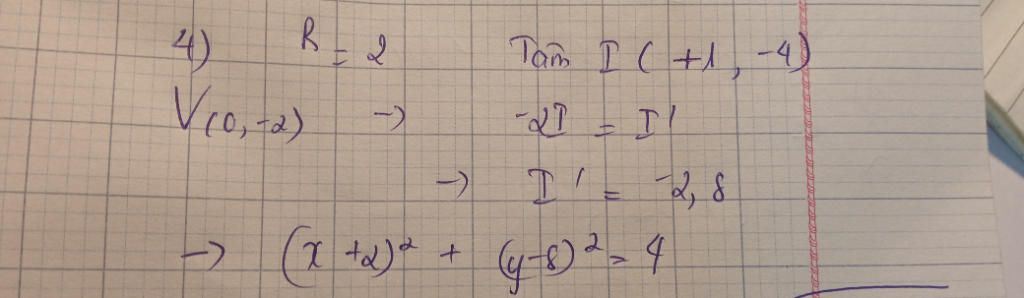 4) R = 2 Tâm I ( +1 , -4)
V(O, -2) → -2I = I'
→ I' = -2, 8
→ (x +2)² + (y-8)² = 4